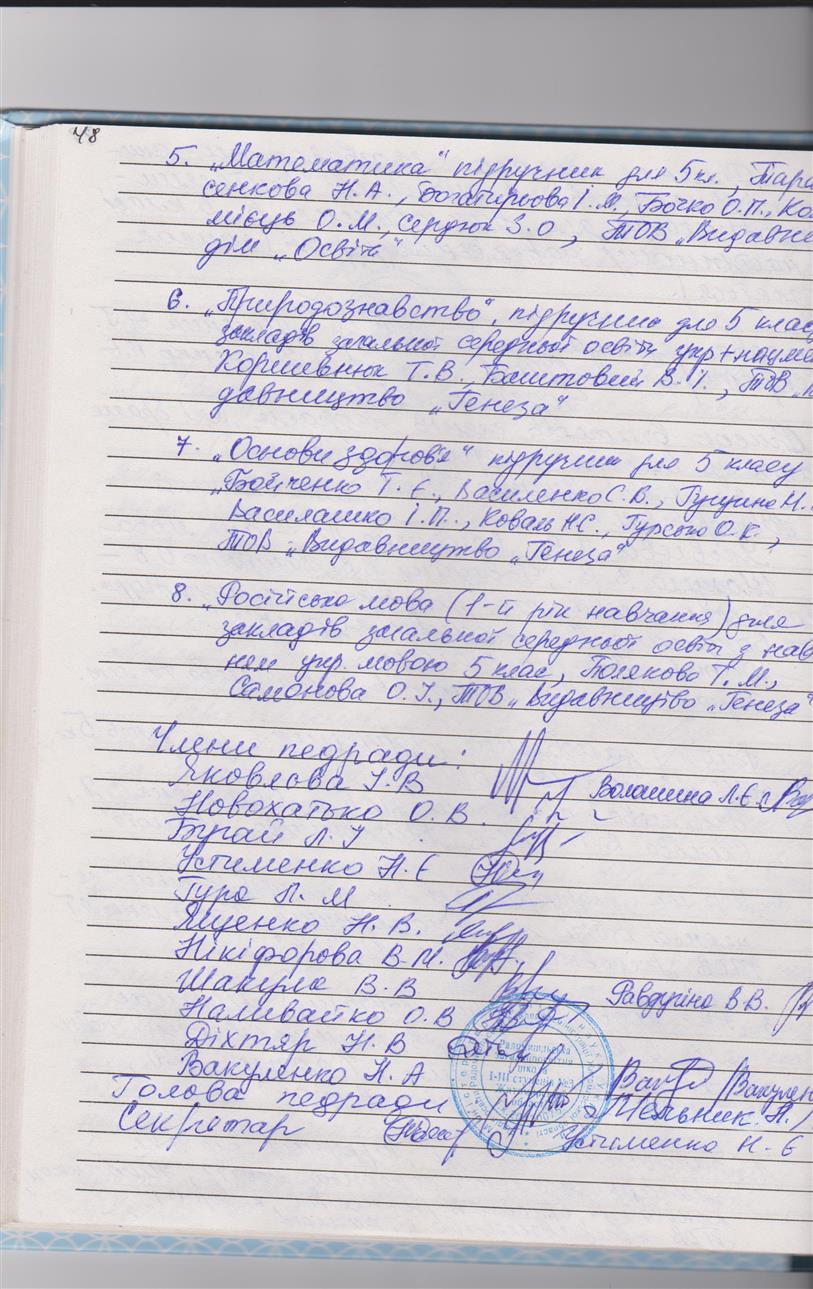 48
5. „Математика" підручник для 5 кл., Тара
сенкова Н.А., Богатирьова І.М, Бочко О.П., Ко
мієць О.М., Сердюк З.О, ТОВ „Видавни
дім „Освіта"
6. „Природознавство", підручник для 5 класу
закладів загальної середньої освіти укр+нацме
Коршевнюк Т.В., Баштовий В.І., ТОВ „
давництво „Генеза"
7. „Основи здоров'я" підручник для 5 класу
„Бойченко Т.Є., Василенко С.В., Гущина Н.
Василашко І.П., Коваль Н.С., Гурська О.К.,
ТОВ „Видавництво „Генеза"
8. „Російська мова (1-й рік навчання) для
закладів загальної середньої освіти з нав
ням укр. мовою 5 клас, Полякова Т.М.,
Самонова О.І., ТОВ „Видавництво „Генеза"
Члени педради:
Яковлєва І.В
Волошина Л.Є.
Новохатько О.В.
Бугай Л.І
Устименко Н.Є
Тура Л.М
Яценко Н.В.
Нікіфорова В.М.
Шакула В.В
Равдугіна В.В.
Наливайко О.В
Діхтяр Н.В
Вакуленко Н.А
Голова педради
Мельник.Л.
Секретар
Устименко Н.Є
школа
І-ІІІ ступенів №3